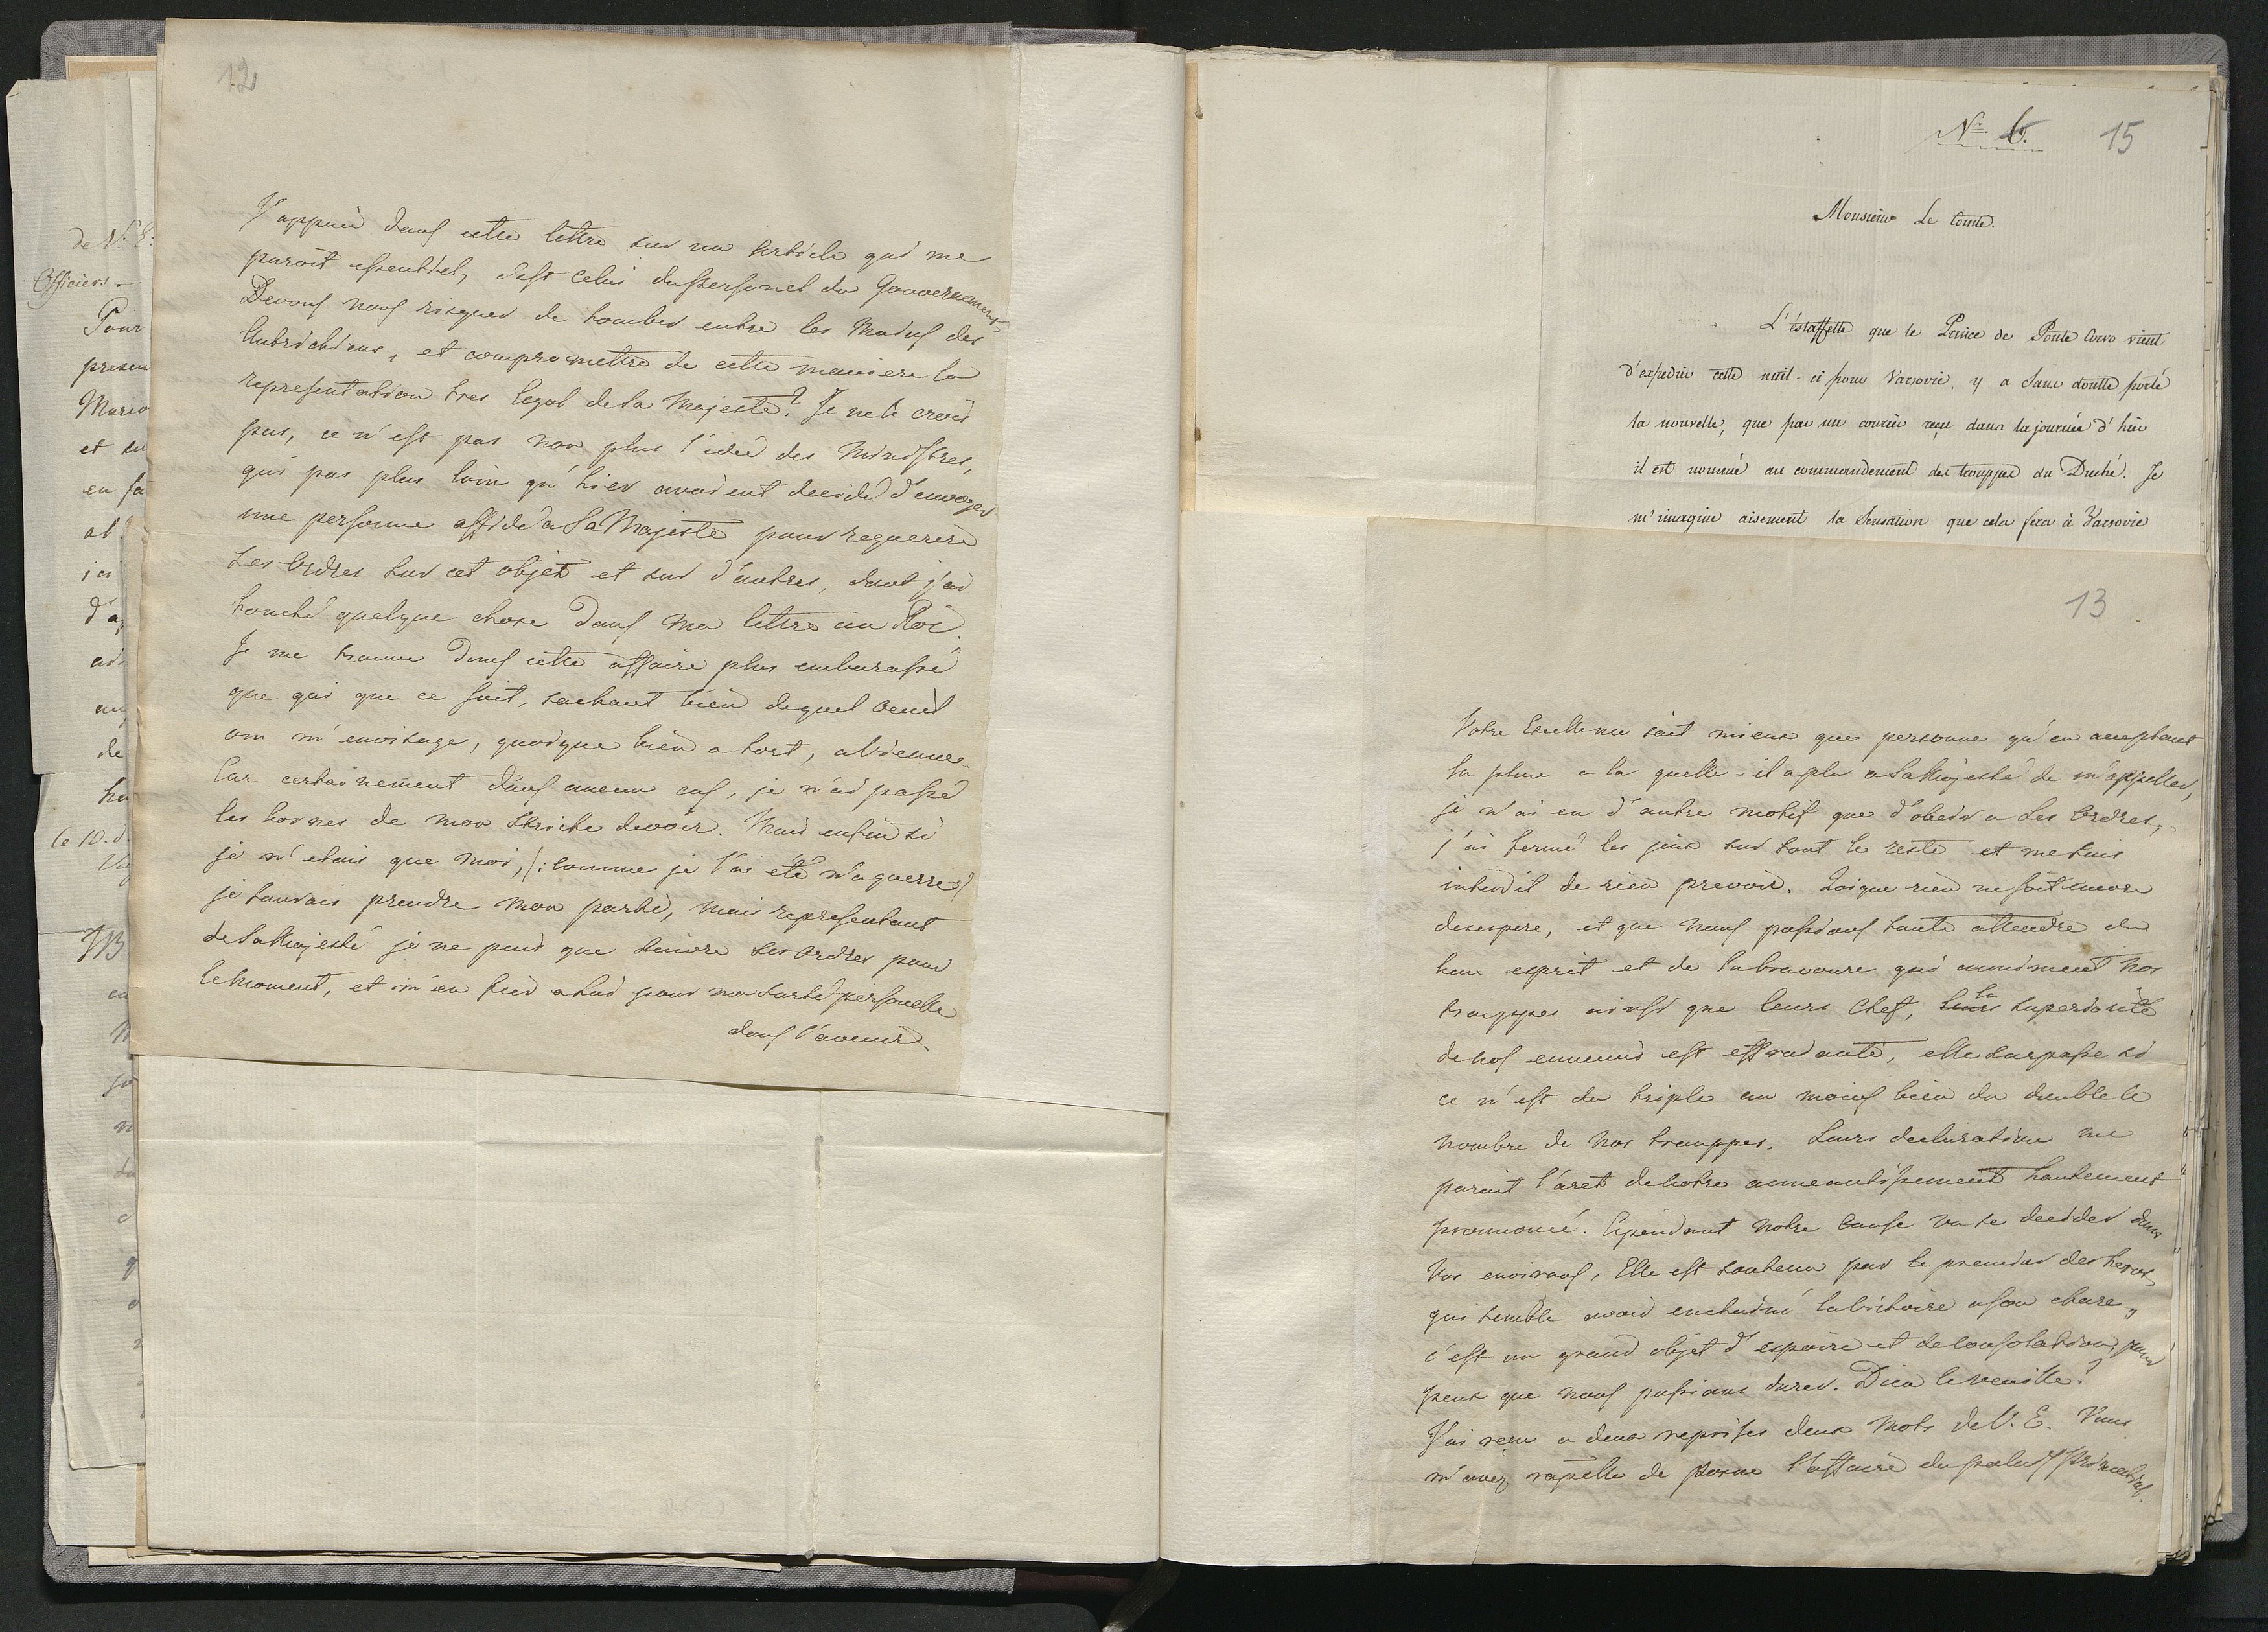 12
J'appuie dans cette lettre sur un article qui me
paroit essentiel, c'est celui du personel du Gouvernement.
Devons nous risquer de tomber entre les mains des
Autrichiens, et compromettre de cette maniere la
representation tres legal de Sa Majesté? Je ne le crois
pas, ce n'est pas non plus l'idee des Ministres,
qui pas plus loin qu'hier avoient decidé d'envoyer
une personne affidé a Sa Majesté pour requerire
Ses Ordres sur cet objet et sur d'autres, dont j'ai
touché quelque chose dans ma lettre au Roi.
Je me trouve dans cette affaire plus embarassé
que qui que ce soit, sachant bien de quel oeuil
on m'envisage, quoique bien a tort, a Vienne.
Car certainement dans aucun cas, je n'ai passé
les bornes de mon stricte devoir. Mais enfin si
je n'etais que moi, (: comme je l'ai été n'aguerres :)
je saurais prendre mon parti, mais representant
de Sa Majesté je ne puis que suivre ses ordres pour
le moment, et m'en fier a lui pour ma sureté personelle
dans l'avenir.
de V. E.
Officiers.
Pour
presen
et su
en fa
ici
de
le 10. d
NB
No 6.
15
Monsieur Le Comte.
L'éstaffette que le Prince de Ponte Corvo vient
d'expedier cette nuit-ci pour Varsovie, y a sans doutte porté
la nouvelle, que par un courier reçu dans la journée d'hier
il est nommé au commandement des trouppes du Duché. Je
m'imagine aisement la Sensation que cela fera à Varsovie
13
Votre Excellence sait mieux que personne qu'en acceptant
la place a la quelle-il a plu a Sa Majesté de m'appeller,
je n'ai eu d'autre motif que d'obeir a Ses Ordres,
j'ai fermé les jeux sur tout le reste et me suis
interdit de rien prevoir. Quoique rien ne soit encore
desespere, et que nous puissions toute attendre du
bon esprit et de la bravoure qui animent nos
trouppes ainsi que leurs Chef, leurs la superiorité
de nos ennemis est effraiante, elle surpasse si
ce n'est du triple au moins bien du double le
nombre de nos trouppes. Leurs declaration me
parait l'aret de notre anneantissement hautement
prononcé. Cependant notre cause va se decider dans
Vos environs, Elle est soutenu par le premier des heros,
qui semble avoir enchainé la victoire a son chare,
c'est un grand objet d'espoire et de consolation, pour
peux que nous puissions durer. Dieu le veuille!
J'ai reçu a deux reprises deux mots de V. E. Vous
m'avez rapelle de Posen l'affaire du palais Primatial.